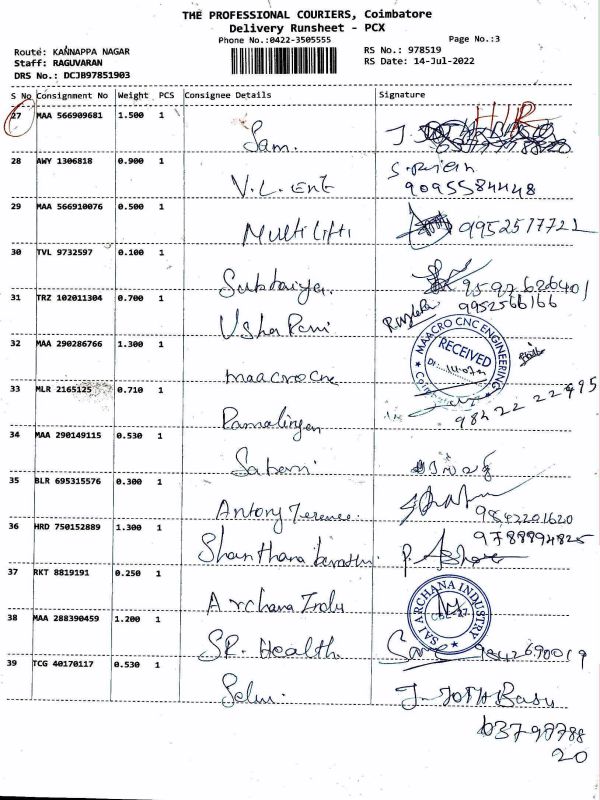 THE PROFESSIONAL COURIERS, Coimbatore
Delivery Runsheet - PCX
Phone No.:0422-3505555
Page No.:3
Route: KANNAPPA NAGAR
RS No.: 978519
Staff: RAGUVARAN
RS Date: 14-Jul-2022
DRS No.: DCJB97851903
S No Consignment No Weight PCS Consignee Details Signature
27 MAA 566909681 1.500 1
Sam.
28 AWY 1306818 0.900 1
V.L. Ent
9095584448
29 MAA 566910076 0.500 1
Multi Lifti 9952517721
30 TVL 9732597 0.100 1
9597626401
31 TRZ 102011304 0.700 1
9952566166
Usha Rani
32 MAA 290286766 1.300 1
MAACRO CNC ENGINEERING
RECEIVED
maacro cnc
33 MLR 2165125 0.710 1
98422 22495
Ramalingam
34 MAA 290149115 0.530 1
35 BLR 695315576 0.300 1
Antony Terence. 9842201620
36 HRD 750152889 1.300 1
9788994825
37 RKT 8819191 0.250 1
Archana Indu
SAI ARCHANA INDUSTRY
38 MAA 288390459 1.200 1
SR. Health 9842690019
39 TCG 40170117 0.530 1
Selvi.